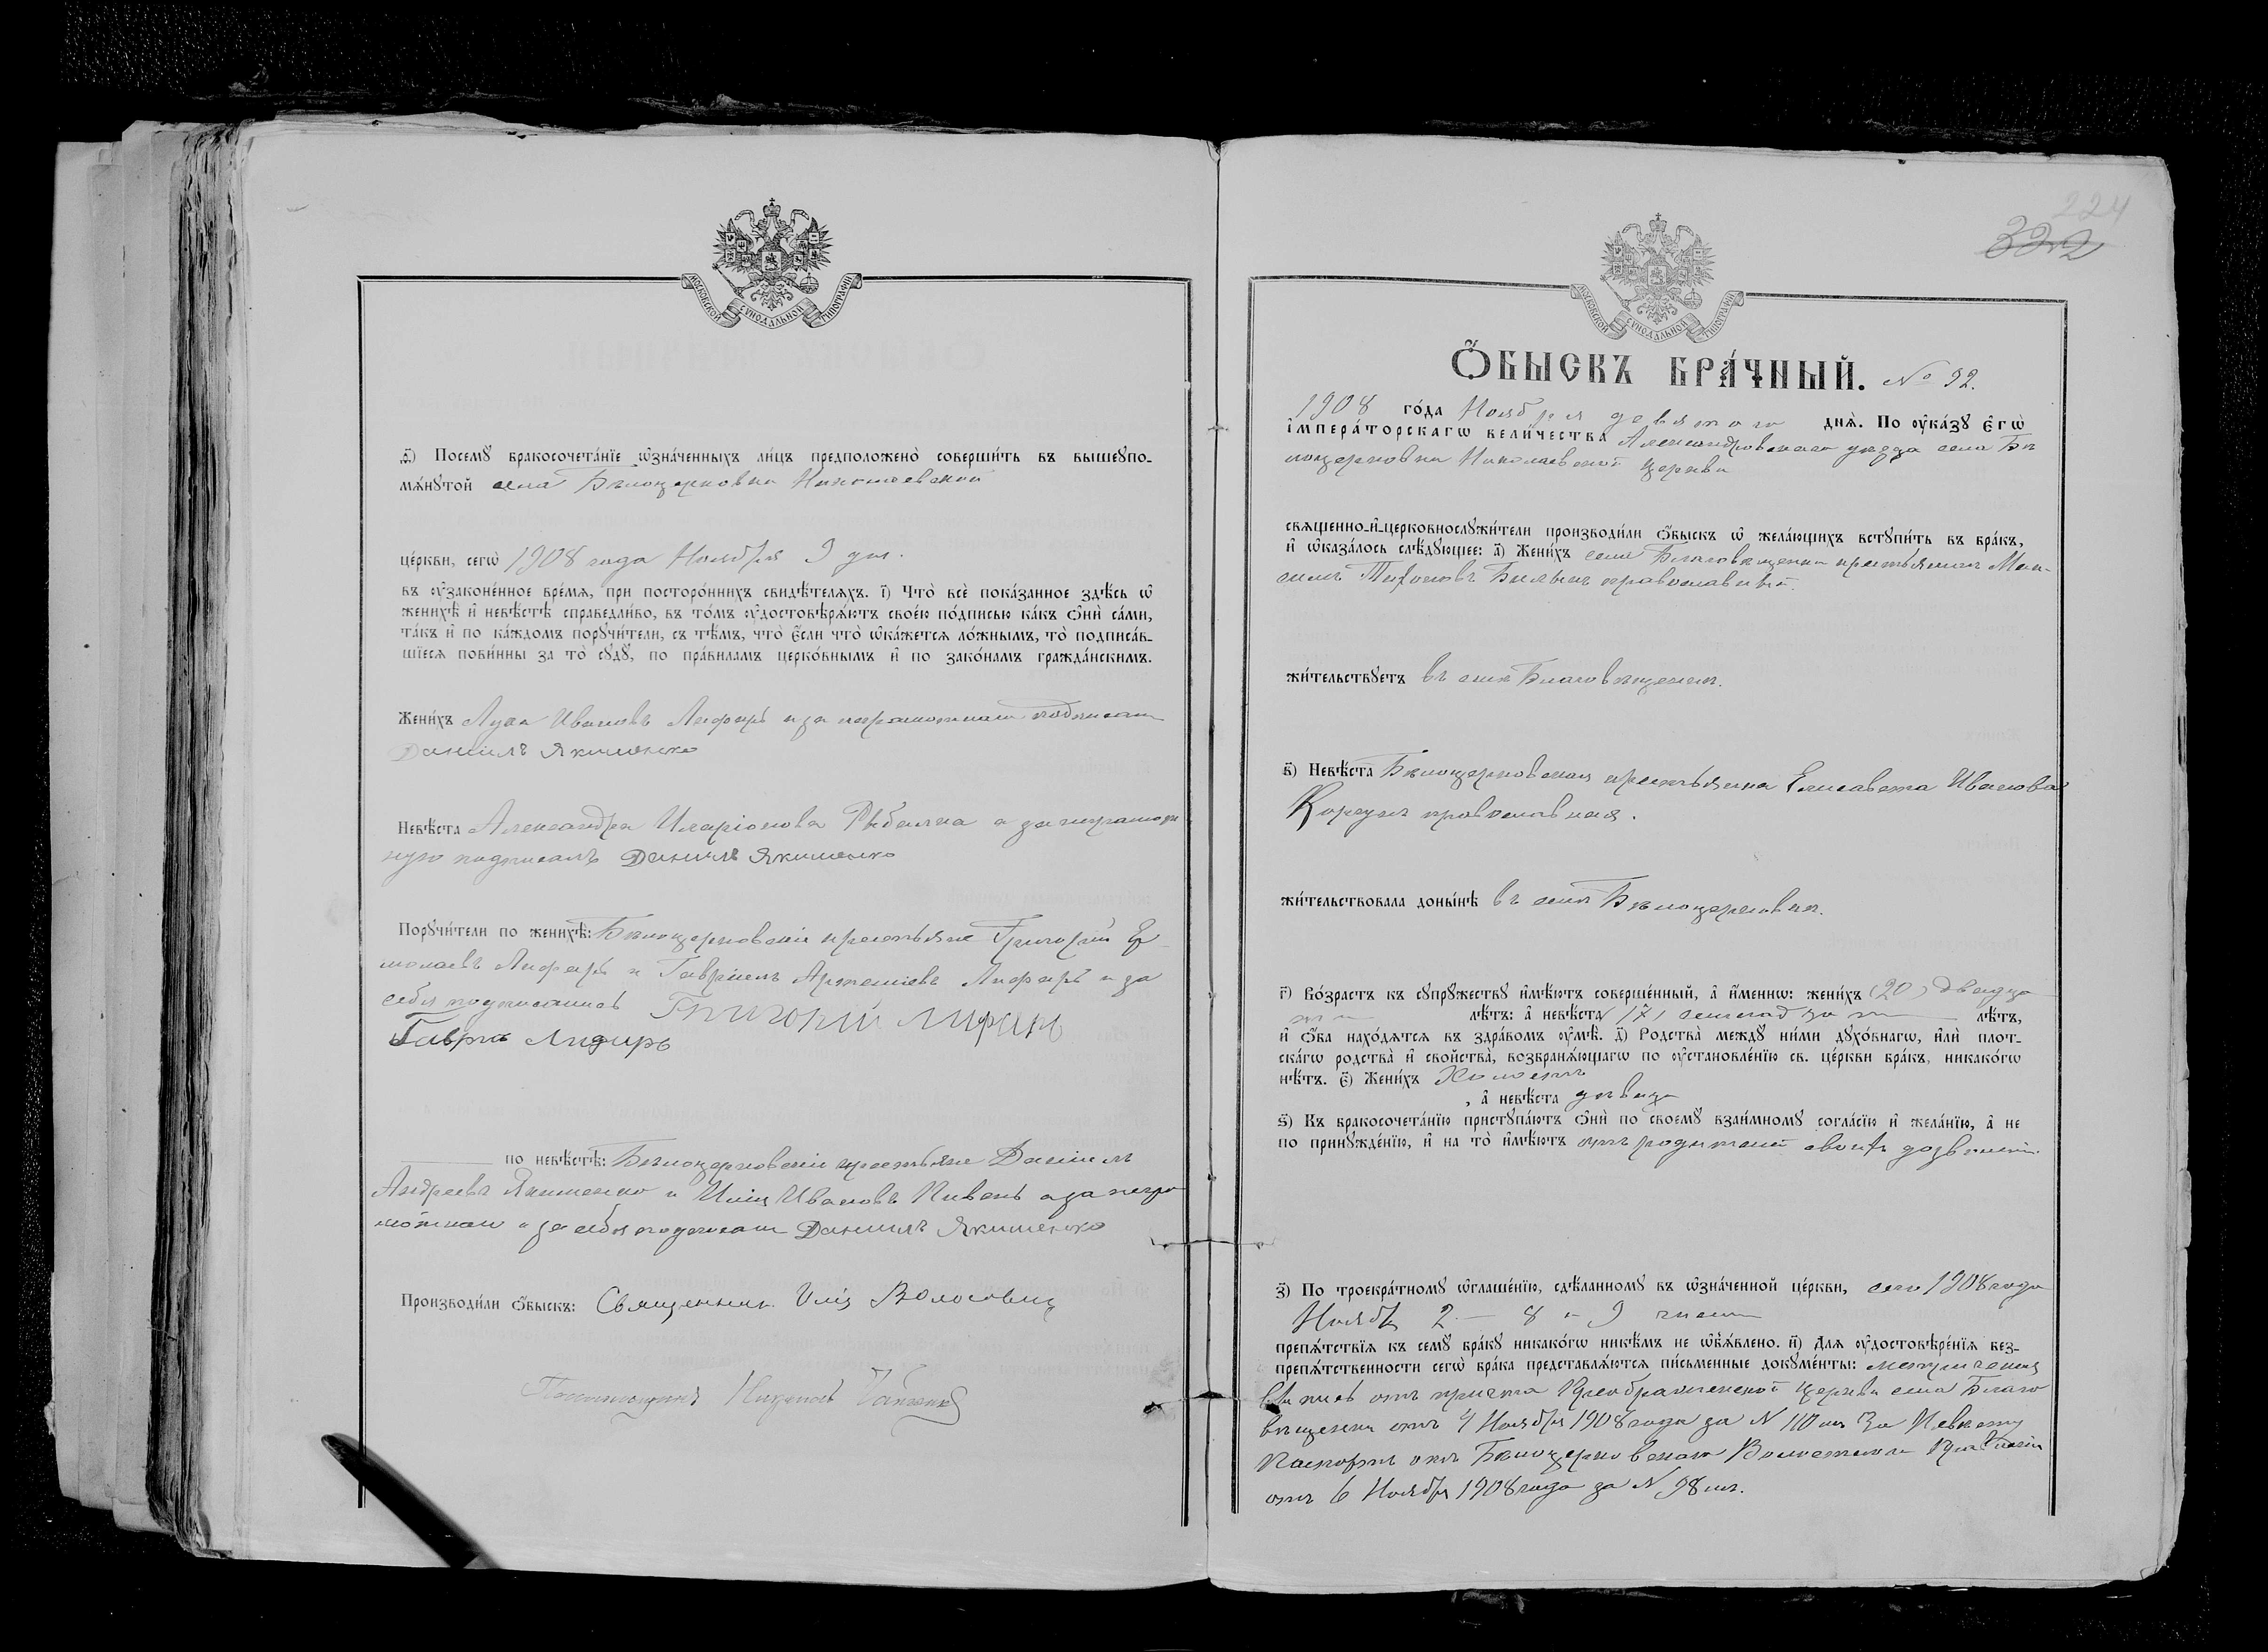 МОСКОВСКОЙ СѴНОДАЛЬНОЙ ТИПОГРАФІИ
ѳ҃) Посемꙋ̀ бракосочета́нїе ѡ҆зна́ченныхъ ли́цъ предположено̀ соверши́ть въ вышеꙋпо-
мѧ́нꙋтой села Бѣлоцерковки Николаевской
це́ркви, сегѡ̀ 1908 года Ноября 9 дня.
въ ᲂу҆зако́ненное вре́мѧ, при посторо́ннихъ свидѣ́телѧхъ. і҃) Что̀ всѐ пока́занное здѣ́сь ѡ҆
женихѣ̀ и҆ невѣ́стѣ справедли́во, въ то́мъ ᲂу҆достовѣрѧ́ютъ свое́ю по́дписью ка́къ ѻ҆нѝ са́ми,
та́къ и҆ по ка́ждомъ порꙋчи́тели, съ тѣ́мъ, что̀ є҆́сли что̀ ѡ҆ка́жетсѧ ло́жнымъ, то̀ подписа́в-
шїесѧ пови́нны за то̀ сꙋдꙋ̀, по пра́виламъ церко́внымъ и҆ по зако́намъ гражда́нскимъ.
Жени́хъ Лука Ивановъ Лифарь а за неграмотнаго подписалъ
Даніилъ Якименко
Невѣ́ста Александра Иларіонова Рыбалка а за неграмот
ную подписалъ Даніилъ Якименко
Порꙋчи́тели по женихѣ̀: Бѣлоцерковскіе крестьяне Григорій Ер
молаевъ Лифарь и Гавріилъ Артеміевъ Лифарь и за
себя подписались Григорій Лифарь
Гаврилъ Лифарь
по невѣ́стѣ: Бѣлоцерковскіе крестьяне Даніилъ
Андреевъ Якименко и Илія Ивановъ Пивень а за негра
мотнаго и за себя подписалъ Даніилъ Якименко
Производи́ли ѻ҆́быскъ: Священникъ Илія Волосовиц
224
322
МОСКОВСКОЙ СѴНОДАЛЬНОЙ ТИПОГРАФІИ
Ѻ҆́БЫСКЪ БРА́ЧНЫЙ. № 92.
1908 го́да Ноября девятаго днѧ̀. По ᲂу҆ка́зꙋ Є҆гѡ̀
І҆мпера́торскагѡ вели́чества Александровскаго уезда села Бѣ
лоцерковки Николаевской церкви
свѧще́нно-и҆-церковнослꙋжи́тели производи́ли ѻ҆́быскъ ѡ҆ жела́ющихъ встꙋпи́ть въ бра́къ,
и҆ ѡ҆каза́лось слѣ́дꙋющее: а҃) Жени́хъ села Благовѣщенки крестьянинъ Мак-
симъ Тихоновъ Билыкъ православный.
жи́тельствꙋетъ въ селѣ Благовѣщенкѣ.
в҃) Невѣ́ста Бѣлоцерковская крестьянка Елисавета Иванова
Корсунъ православная.
жи́тельствовала доны́нѣ въ селѣ Бѣлоцерковкѣ.
г҃) Во́зрастъ къ сꙋпрꙋ́жествꙋ и҆мѣ́ютъ соверше́нный, а҆ и҆́меннѡ: жени́хъ (20) двадца
ти лѣ́тъ: а҆ невѣ́ста (17) семнадцати лѣ́тъ,
и҆ ѻ҆́ба нахо́дѧтсѧ въ здра́вомъ ᲂу҆мѣ̀. д҃) Родства̀ междꙋ̀ ни́ми дꙋхо́внагѡ, и҆лѝ плот-
ска́гѡ родства̀ и҆ свойства̀, возбранѧ́ющагѡ по ᲂу҆становле́нїю св. це́ркви бра́къ, никако́гѡ
нѣ́тъ. є҃) Жени́хъ Холостъ
, а҆ невѣ́ста дѣвица
ѕ҃) Къ бракосочета́нїю пристꙋпа́ютъ ѻ҆нѝ по своемꙋ̀ взаи́мномꙋ согла́сїю и҆ жела́нїю, а҆ не
по принꙋжде́нїю, и҆ на то̀ и҆мѣ́ютъ отъ родителей своихъ дозволеніе.
з҃) По троекра́тномꙋ ѡ҆глаше́нїю, сдѣ́ланномꙋ въ ѡ҆зна́ченной це́ркви, сего 1908 года
Ноября 2 — 8 и 9 чиселъ
препѧ́тствїѧ къ семꙋ̀ бра́кꙋ никако́гѡ никѣ́мъ не ѡ҆б̾ѧ́влено. и҃) Длѧ ᲂу҆достовѣре́нїѧ без-
препѧ́тственности сегѡ̀ бра́ка представлѧ́ютсѧ пи́сьменные докꙋме́нты: метрическая
выпись отъ причта Преображенской церкви села Благо
вѣщенки отъ 4 Ноября 1908 года за № 110 мъ
Паспортъ отъ Бѣлоцерковскаго Волостного Правленія
отъ 6 Ноября 1908 года за № 98 мъ.